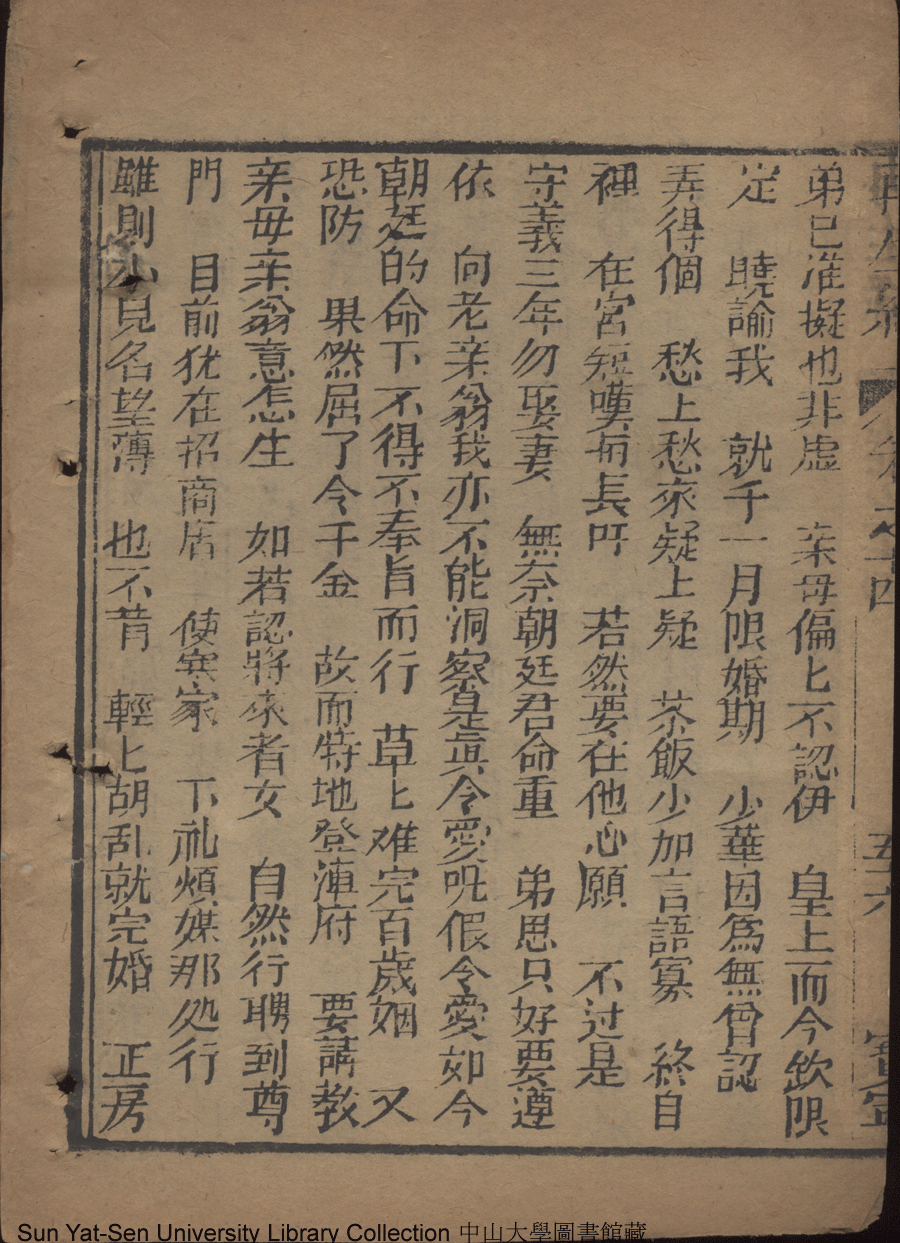 再生緣 卷之十四 五六 寶寧
弟已准擬也非虛 亲母偏匕不認伊 皇上而今欽限
定 曉諭我 就千一月限婚期 少華因爲無曾認
弄得個 愁上愁來疑上疑 茶飯少加言語寡 終自
裡 在宮短嘆而長吁 若然要在他心願 不过是
守義三年勿娶妻 無奈朝廷君命重 弟思只好要遵
依 向老亲翁我亦不能洞察是真令愛呢假令愛如今
朝廷的命下不得不奉旨而行 草匕难完百歲姻 又
恐防 果然屈了令千金 故而特地登潭府 要請教
亲母亲翁意怎生 如若認將來者女 自然行聘到尊
門 目前犹在招商店 使寒家 下礼煩媒那処行
雖則小兒名望薄 也不肯 輕匕胡乱就完婚 正房
Sun Yat-Sen University Library Collection 中山大學圖書館藏